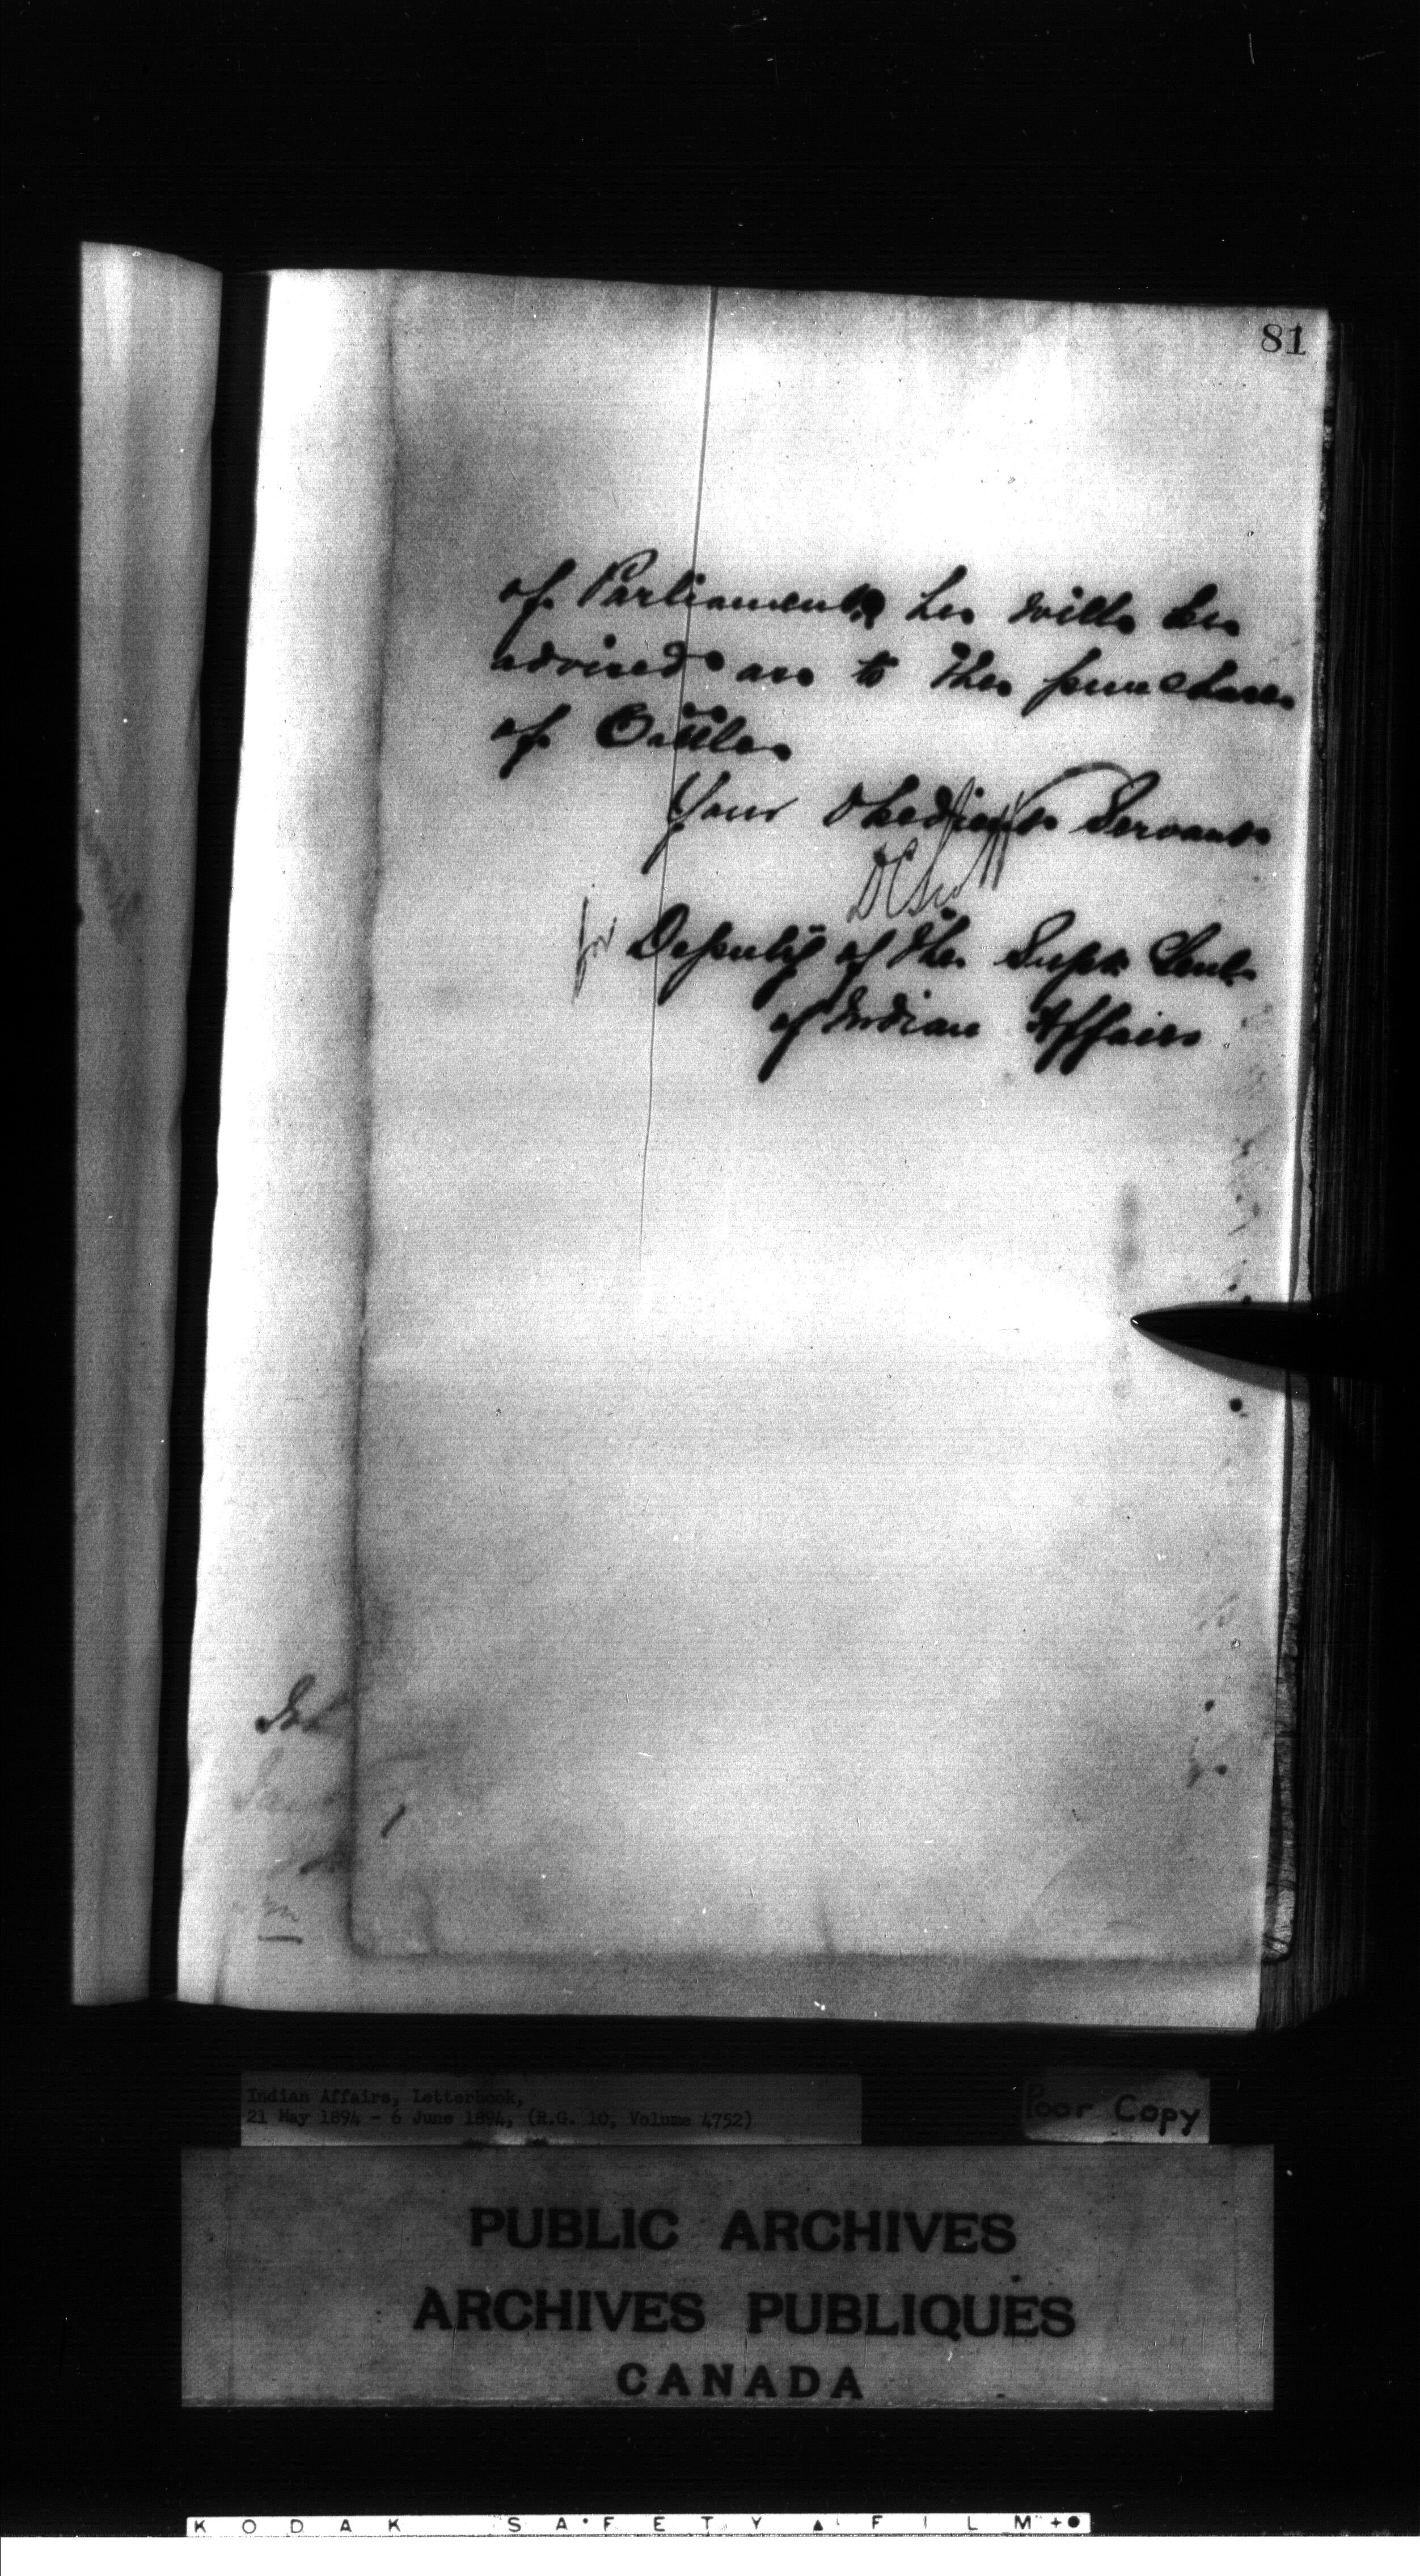 81
of Parliament he will be
advised as to the purchase
of Cattle
Your Obedient Servant
D C Scott
for Deputy of the Supt Genl
of Indian Affairs
Indian Affairs, Letterbook,
21 May 1894 - 6 June 1894, (R.G. 10, Volume 4752)
Poor Copy
PUBLIC ARCHIVES
ARCHIVES PUBLIQUES
CANADA
KODAK SAFETY FILM